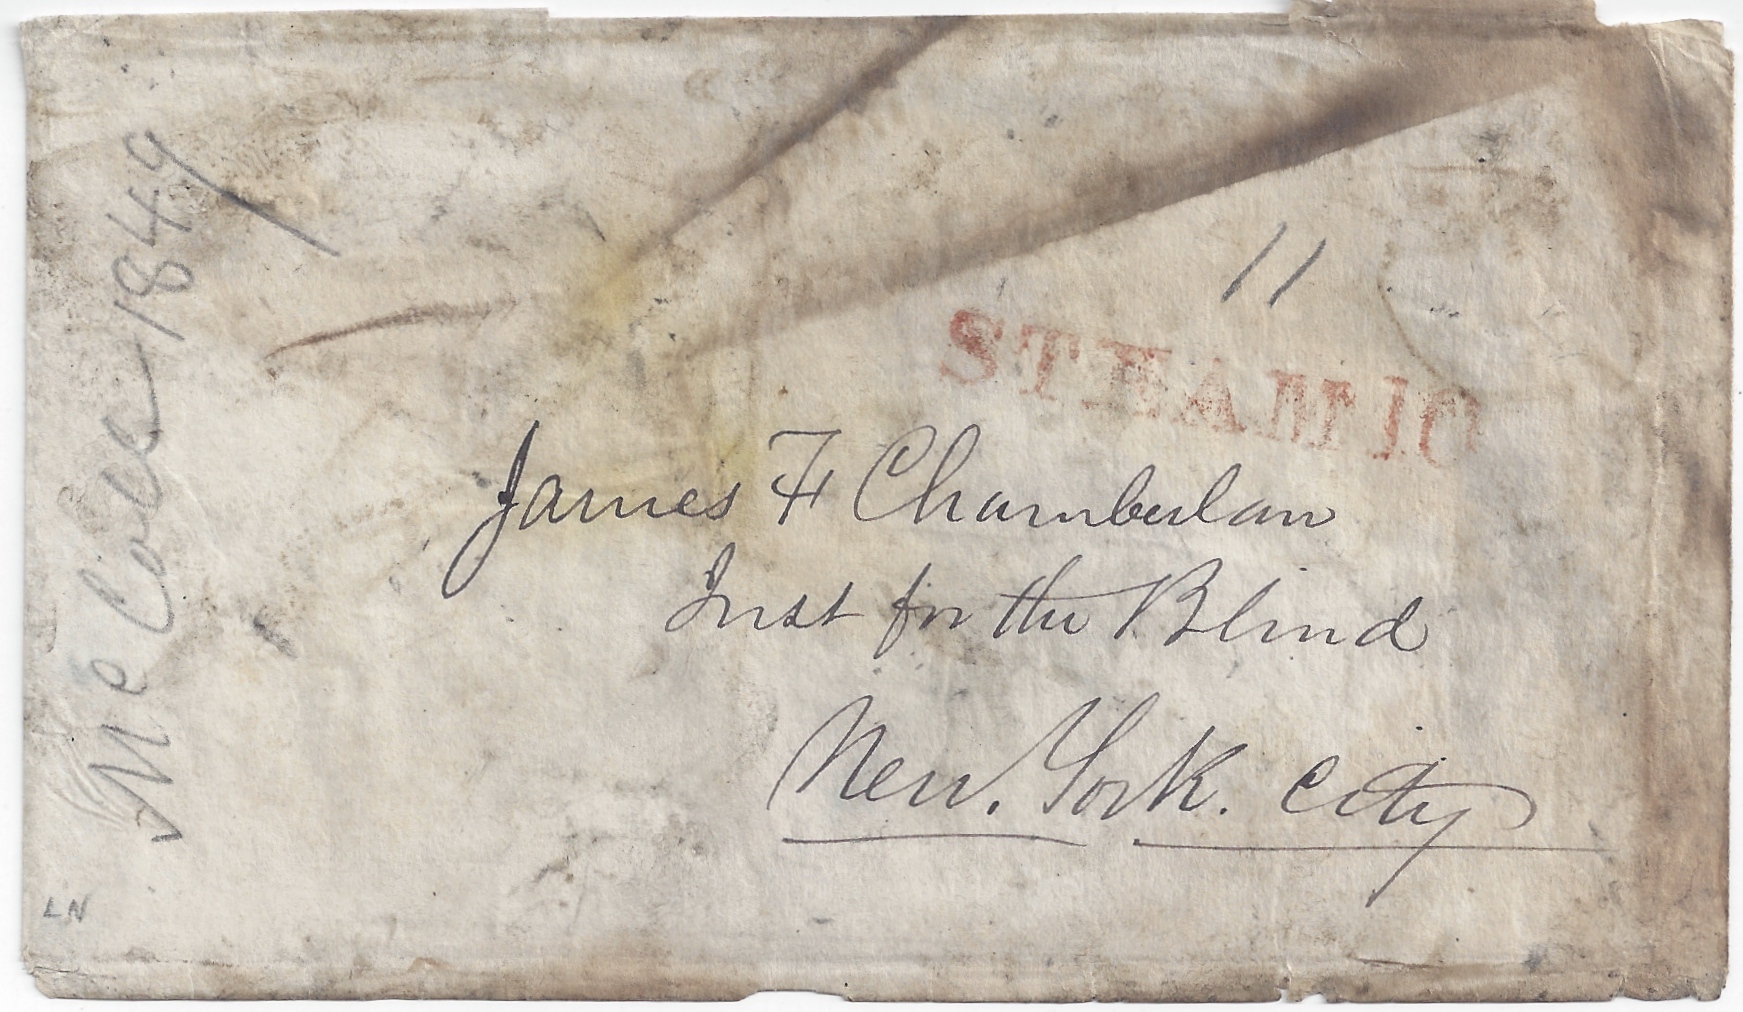 11
STEAM 10
James F Chamberlan
Inst for the Blind
New. York. City
Mc Coll 1849
LN